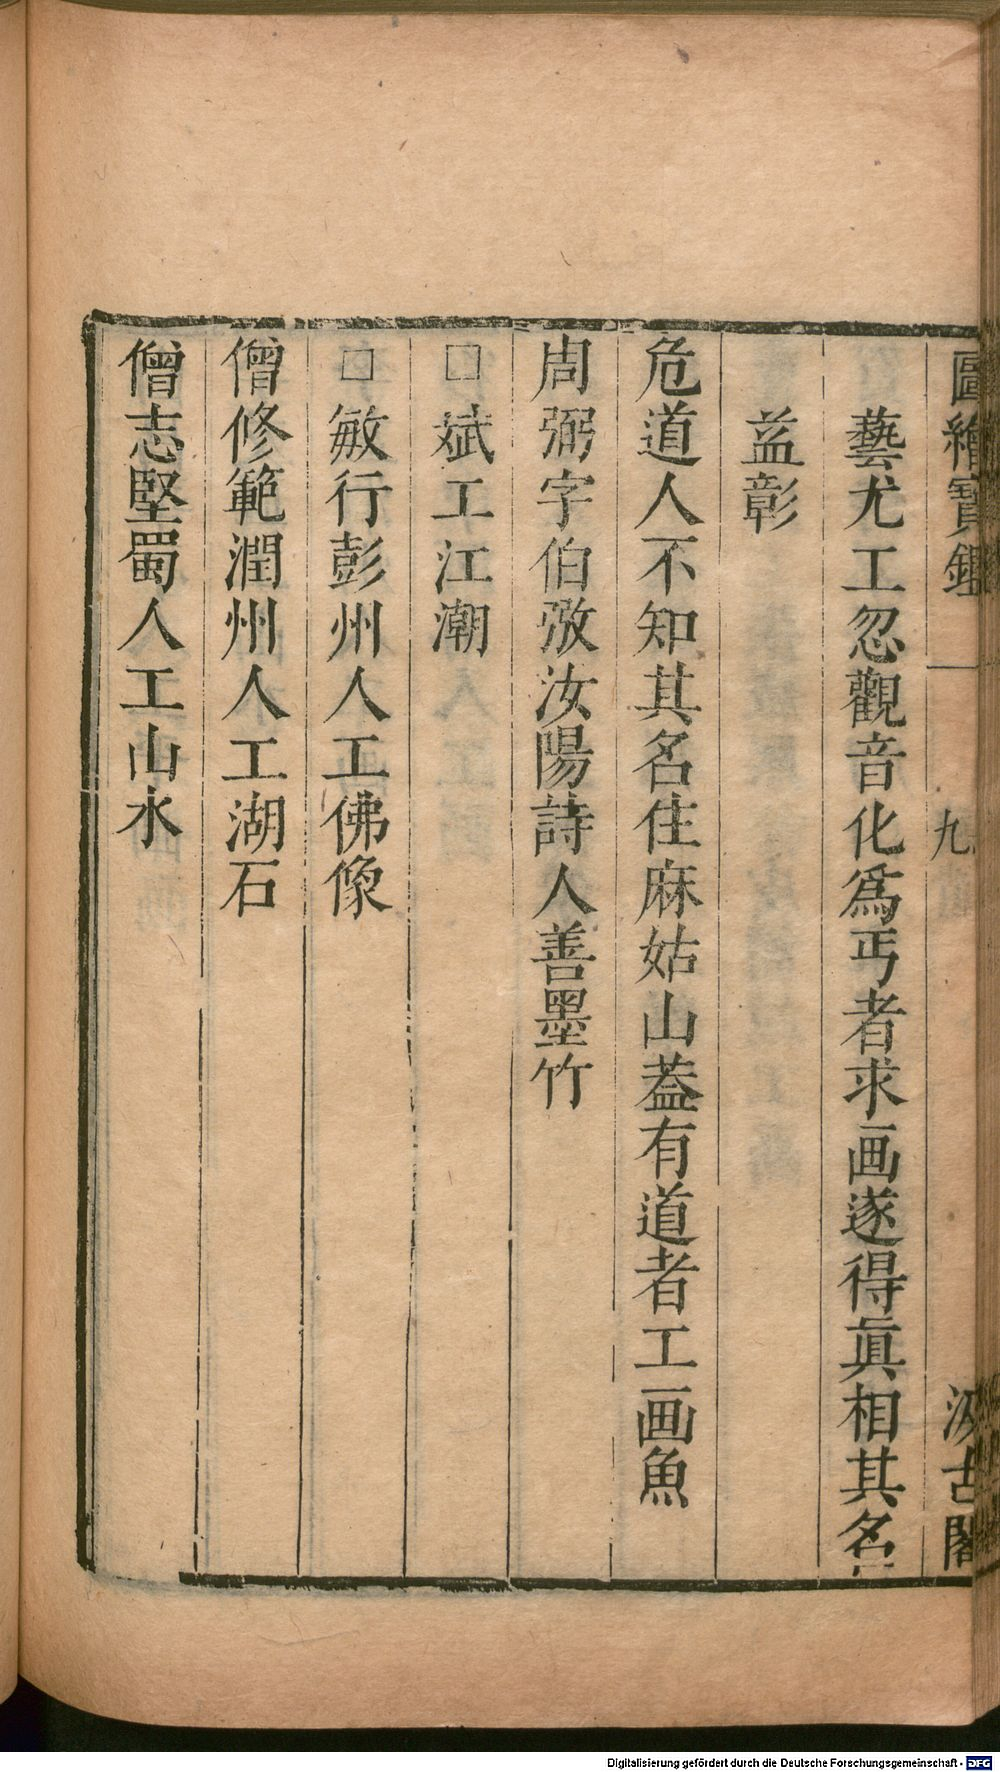 圖繪寶鑑 九 汲古閣
藝尤工忽觀音化爲丐者求画遂得眞相其名
益彰
危道人不知其名住麻姑山葢有道者工画魚
周弼字伯弜汝陽詩人善墨竹
□斌工江潮
□敏行彭州人工佛像
僧修範潤州人工湖石
僧志堅蜀人工山水
Digitalisierung gefördert durch die Deutsche Forschungsgemeinschaft - DFG